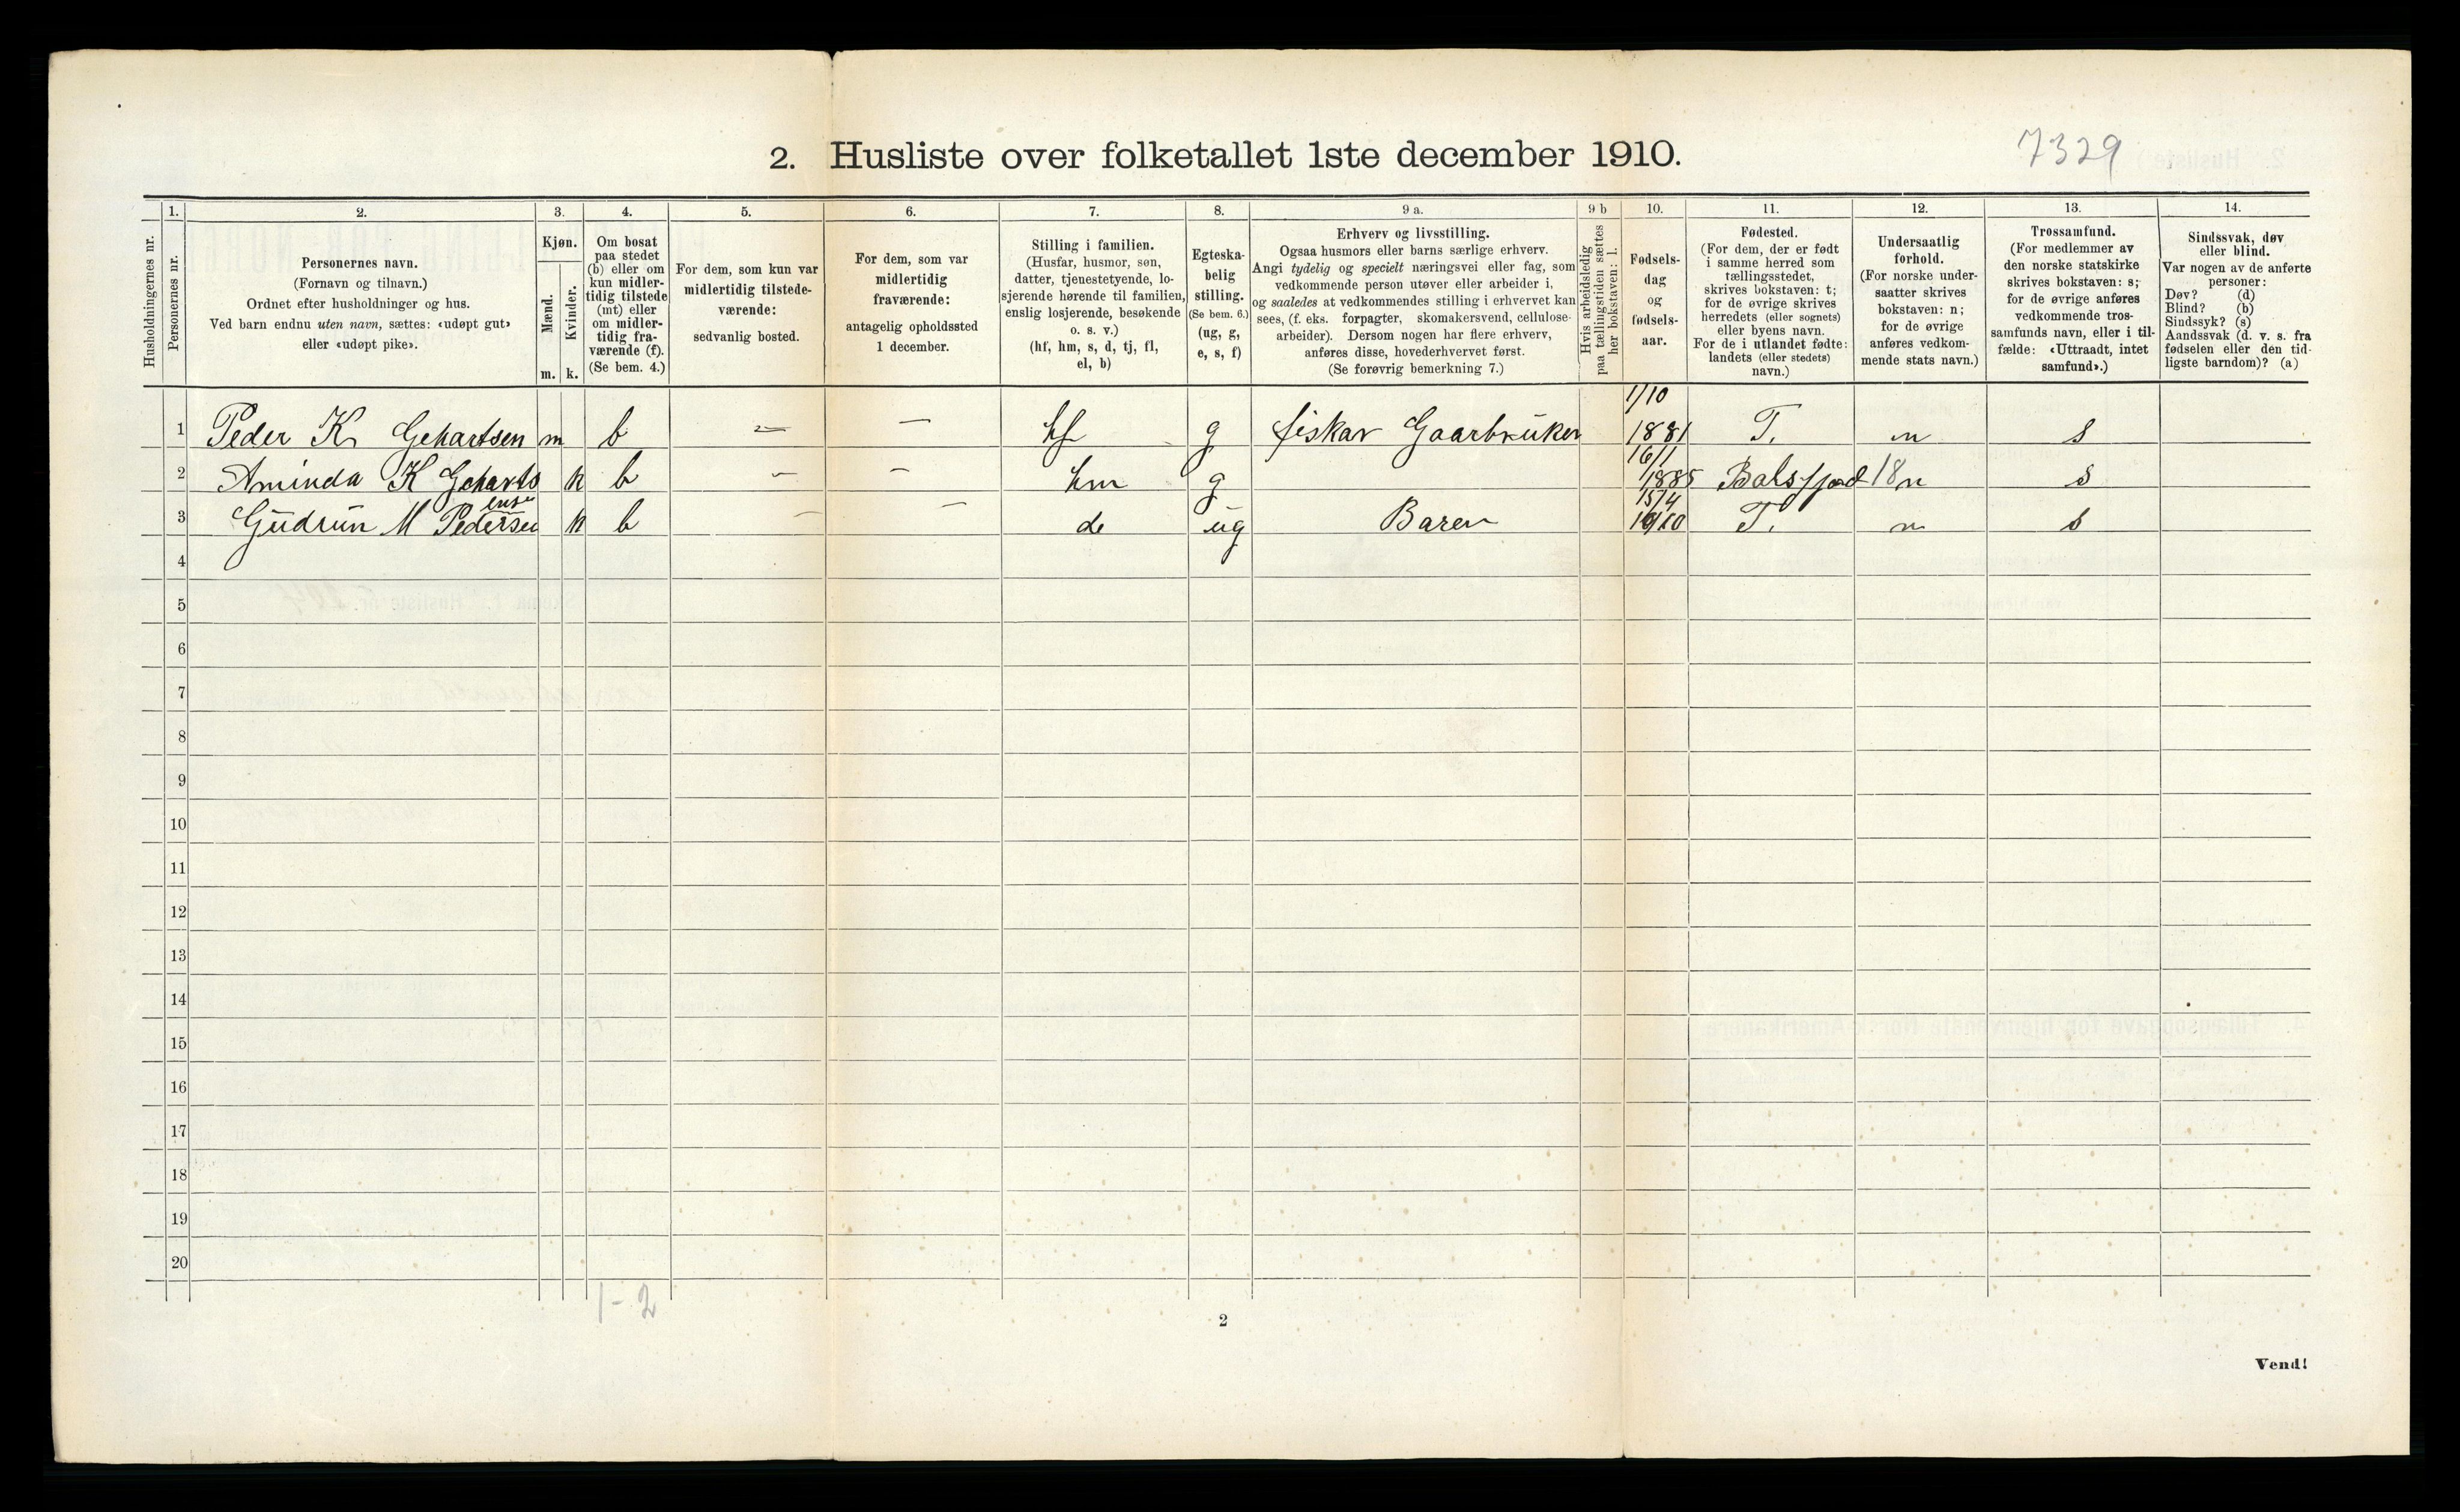 2. Husliste over folketallet 1ste december 1910.
7329
1. 2. 3. 4. 5. 6. 7. 8. 9 a. 9 b 10. 11. 12. 13. 14.
Husholdningernes nr.
Personernes nr.
Personernes navn.
(Fornavn og tilnavn.)
Ordnet efter husholdninger og hus.
Ved barn endnu uten navn, sættes: «udøpt gut»
eller «udøpt pike».
Kjøn.
Mænd.
Kvinder.
m. k.
Om bosat
paa stedet
(b) eller om
kun midler-
tidig tilstede
(mt) eller
om midler-
tidig fra-
værende (f).
(Se bem. 4.)
For dem, som kun var
midlertidig tilstede-
værende:
sedvanlig bosted.
For dem, som var
midlertidig
fraværende:
antagelig opholdssted
1 december.
Stilling i familien.
(Husfar, husmor, søn,
datter, tjenestetyende, lo-
sjerende hørende til familien,
enslig losjerende, besøkende
o. s. v.)
(hf, hm, s, d, tj, fl,
el, b)
Egteska-
belig
stilling.
(Se bem. 6.)
(ug, g,
e, s, f)
Erhverv og livsstilling.
Ogsaa husmors eller barns særlige erhverv.
Angi tydelig og specielt næringsvei eller fag, som
vedkommende person utøver eller arbeider i,
og saaledes at vedkommendes stilling i erhvervet kan
sees, (f. eks. forpagter, skomakersvend, cellulose-
arbeider). Dersom nogen har flere erhverv,
anføres disse, hovederhvervet først.
(Se forøvrig bemerkning 7.)
Hvis arbeidsledig
paa tællingstiden sættes
her bokstaven: l.
Fødsels-
dag
og
fødsels-
aar.
Fødested.
(For dem, der er født
i samme herred som
tællingsstedet,
skrives bokstaven: t;
for de øvrige skrives
herredets (eller sognets)
eller byens navn.
For de i utlandet fødte:
landets (eller stedets)
navn.)
Undersaatlig
forhold.
(For norske under-
saatter skrives
bokstaven: n;
for de øvrige
anføres vedkom-
mende stats navn.)
Trossamfund.
(For medlemmer av
den norske statskirke
skrives bokstaven: s;
for de øvrige anføres
vedkommende tros-
samfunds navn, eller i til-
fælde: «Uttraadt, intet
samfund».)
Sindssvak, døv
eller blind.
Var nogen av de anførte
personer:
Døv? (d)
Blind? (b)
Sindssyk? (s)
Aandssvak (d. v. s. fra
fødselen eller den tid-
ligste barndom)? (a)
1/10
1 Peder K. Gehartsen m b — — hf g fiskar Gaarbruker 1881 T. n s
16/1
2 Aminda K Geharts k b — — hm g 1885 Balsfjord 18 n s
ensen 15/4
3 Gudrun M Pedersen k b — — de ug Baren 1910 T. n s
4
5
6
7
8
9
10
11
12
13
14
15
16
17
18
19
20
1-2
2
Vend!